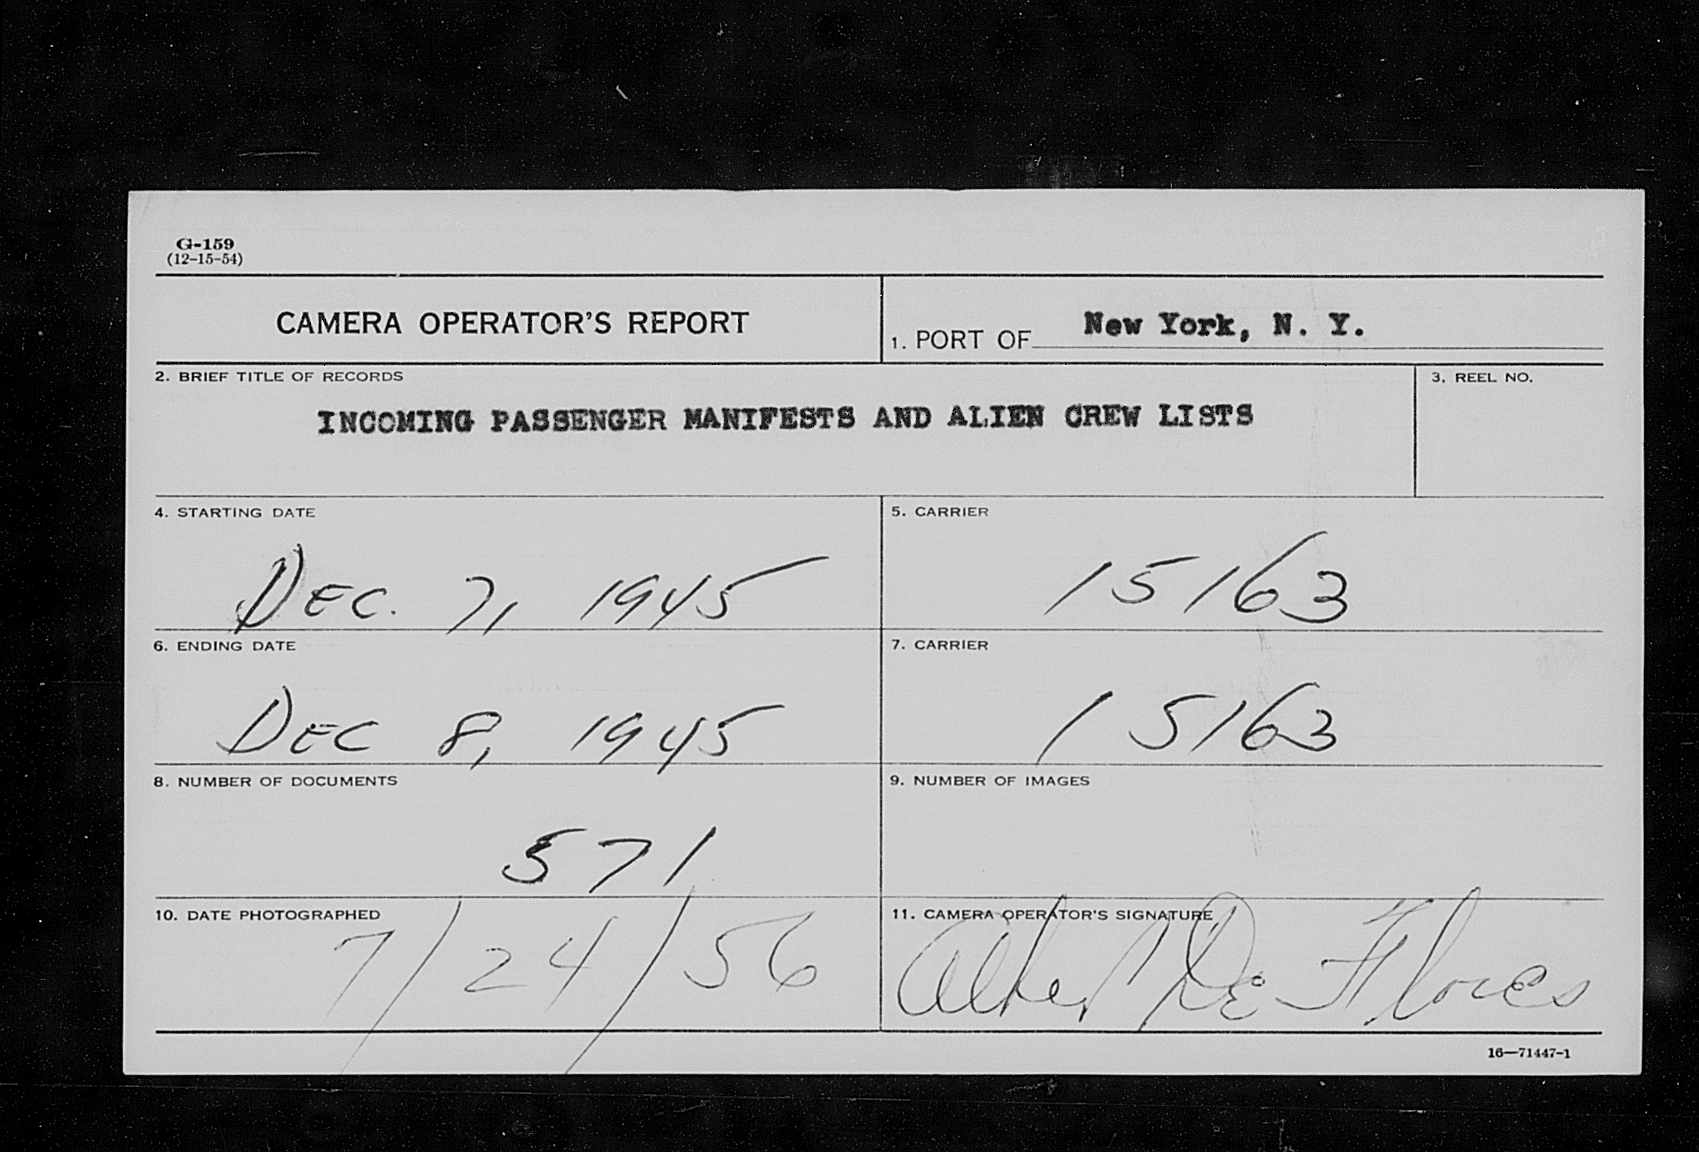 G-159
(12-15-54)
CAMERA OPERATOR'S REPORT
1. PORT OF New York, N. Y.
2. BRIEF TITLE OF RECORDS
3. REEL NO.
INCOMING PASSENGER MANIFESTS AND ALIEN CREW LISTS
4. STARTING DATE
5. CARRIER
DEC. 7, 1945
15163
6. ENDING DATE
7. CARRIER
DEC 8, 1945
15163
8. NUMBER OF DOCUMENTS
9. NUMBER OF IMAGES
571
10. DATE PHOTOGRAPHED
11. CAMERA OPERATOR'S SIGNATURE
7/24/56
Albert De Flores
16—71447-1